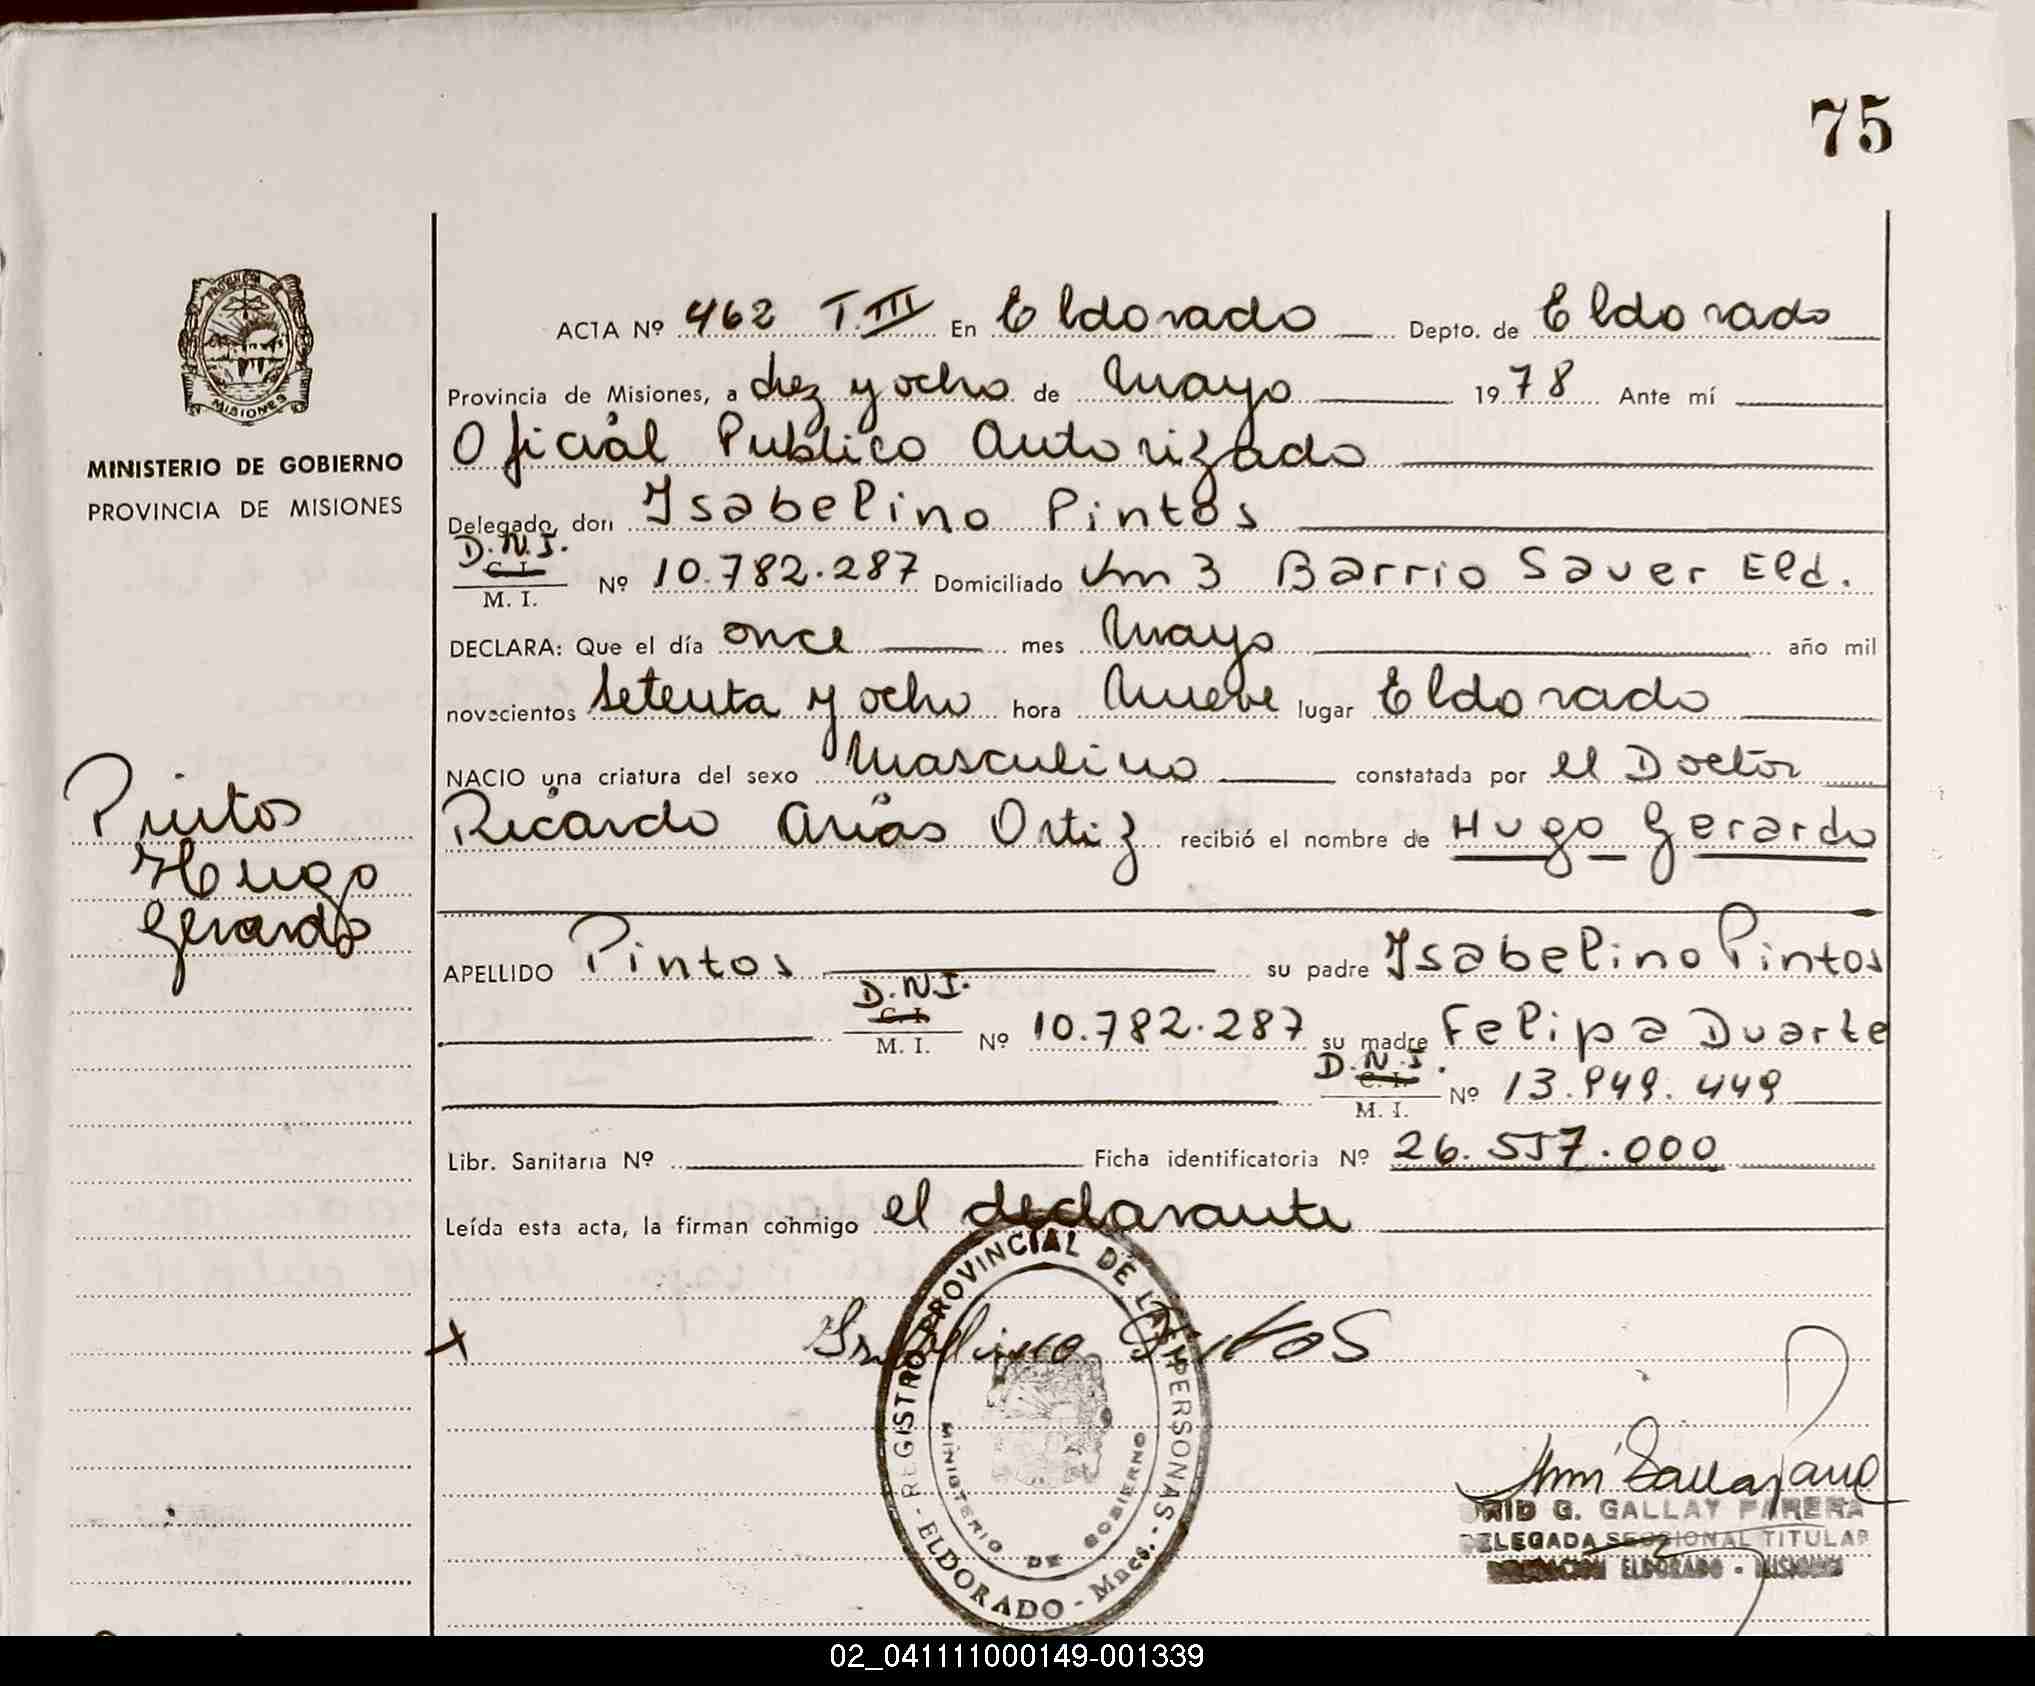 75
PROVINCIA DE
MISIONES
MINISTERIO DE GOBIERNO
PROVINCIA DE MISIONES
Pintos
Hugo
Gerardo
ACTA Nº 462 T.III En Eldorado Depto. de Eldorado
Provincia de Misiones, a diez y ocho de Mayo 1978 Ante mí
Oficial Publico Autorizado
Delegado, don Isabelino Pintos
D.N.I.
C. I.
M. I. Nº 10.782.287 Domiciliado km 3 Barrio Sauer Eld.
DECLARA: Que el día once mes Mayo año mil
novecientos setenta y ocho hora Nueve lugar Eldorado
NACIO una criatura del sexo Masculino constatada por el Doctor
Ricardo Arias Ortiz recibió el nombre de Hugo Gerardo
APELLIDO Pintos su padre Isabelino Pintos
D.N.I.
C. I.
M. I. Nº 10.782.287 su madre Felipa Duarte
D.N.I.
C. I.
M. I. Nº 13.949.449
Libr. Sanitaria Nº Ficha identificatoria Nº 26.557.000
Leída esta acta, la firman conmigo el declarante
x Isabelino Pintos
REGISTRO PROVINCIAL DE LAS PERSONAS - ELDORADO - Mnes. -
MINISTERIO DE GOBIERNO
G. GALLAY PARERA
DELEGADA SECCIONAL TITULAR
ELDORADO - MISIONES
02_041111000149-001339